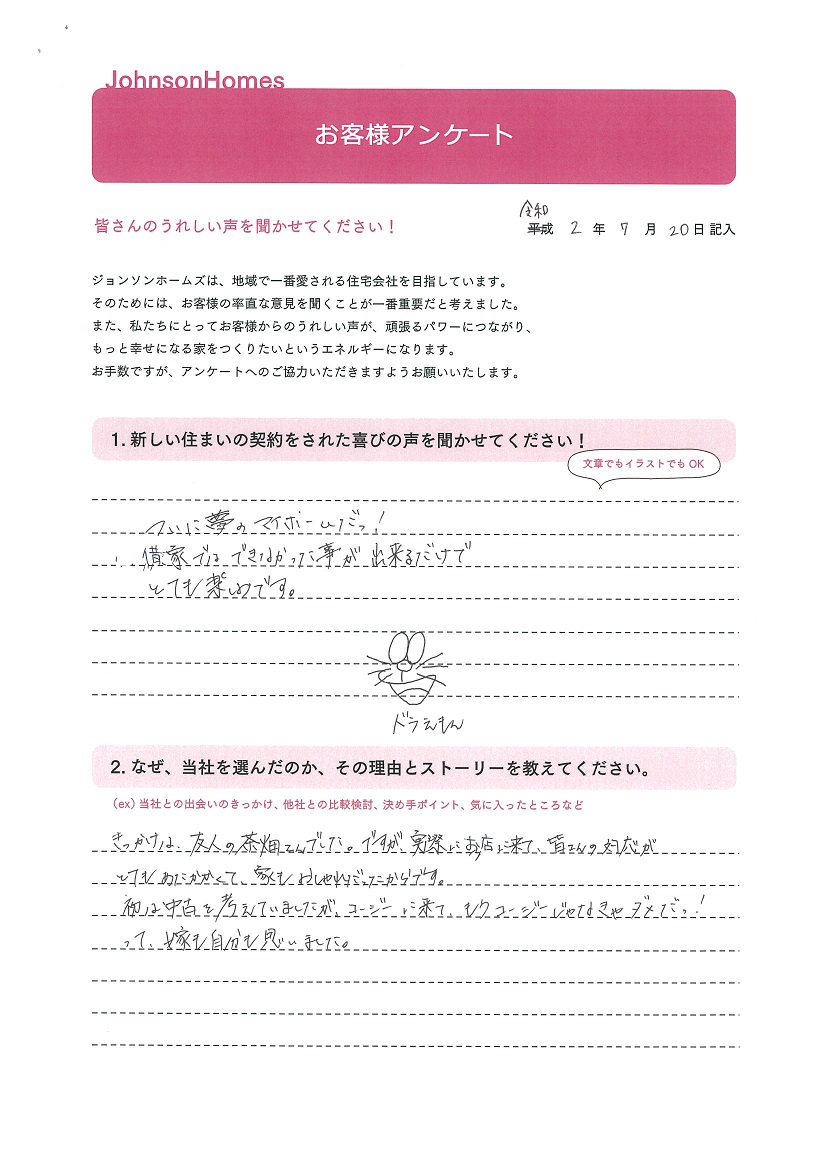 JohnsonHomes
お客様アンケート
皆さんのうれしい声を聞かせてください！
令和
平成 2 年 7 月 20 日 記入
ジョンソンホームズは、地域で一番愛される住宅会社を目指しています。
そのためには、お客様の率直な意見を聞くことが一番重要だと考えました。
また、私たちにとってお客様からのうれしい声が、頑張るパワーにつながり、
もっと幸せになる家をつくりたいというエネルギーになります。
お手数ですが、アンケートへのご協力いただきますようお願いいたします。
1. 新しい住まいの契約をされた喜びの声を聞かせてください！
文章でもイラストでも OK
ついに夢のマイホームだっ！
借家ではできなかった事が出来るだけで
とても楽しみです。
ドラえもん
2. なぜ、当社を選んだのか、その理由とストーリーを教えてください。
（ex）当社との出会いのきっかけ、他社との比較検討、決め手ポイント、気に入ったところなど
きっかけは、友人の茶畑さんでした。ですが、実際にお店に来て、皆さんの対応が
とてもあたたかくて、家もおしゃれだったからです。
初は中古を考えていましたが、コージーに来て、もうコージーじゃなきゃダメだっ！
って、嫁も自分も思いました。